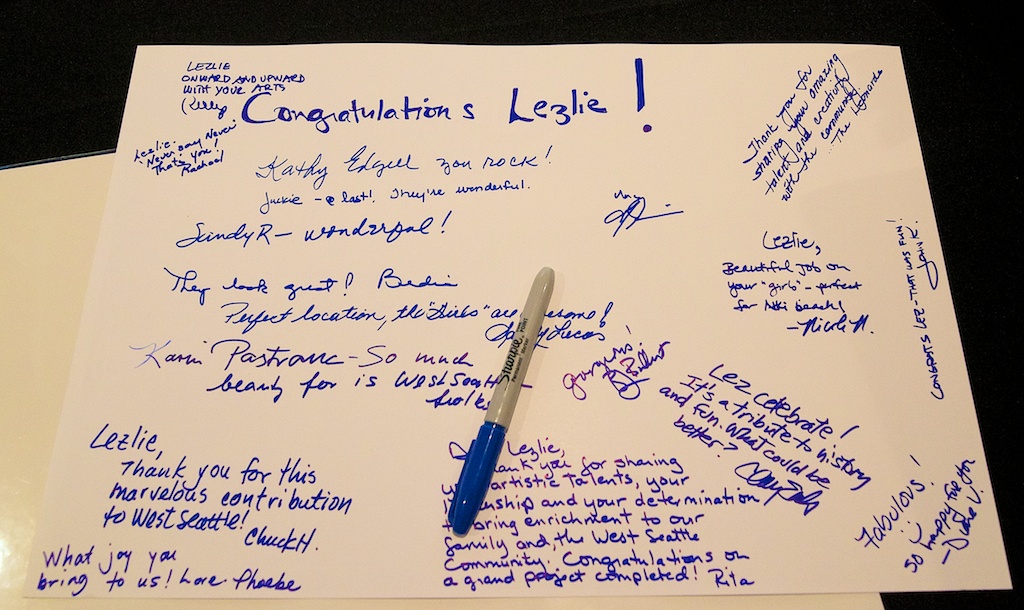 LEZLIE
ONWARD AND UPWARD
WITH YOUR ARTS
Kelly
Congratulations Lezlie!
Lezlie-
Never say Never
That's you!
Rachael
Thank you for
sharing your amazing
talent and creativity
with the community
The Leonards
Kathy Edgell you rock!
Jackie - @ last! They're wonderful.
Sandy R - wonderful!
They look great!
Perfect location, the "Girls" are
Lucas
Karin Pastrana - So much
beauty for is West Seattle
folks
Sharpie
Lezlie,
Beautiful job on
your "girls" - perfect
for Alki beach!
- Nicole N.
CONGRATS LEZ - THAT WAS FUN!
JOHN K.
gorgeous!
Lez celebrate!
It's a tribute to history
and fun. What could be
better?
Lezlie,
Thank you for this
marvelous contribution
to West Seattle!
Chuck H.
What joy you
bring to us! Love Phoebe
Lezlie,
you for sharing
artistic talents, your
and your determination
bring enrichment to our
family and, the West Seattle
Community. Congratulations on
a grand project completed! Rita
Fabulous!
so happy for you
- Diane J.